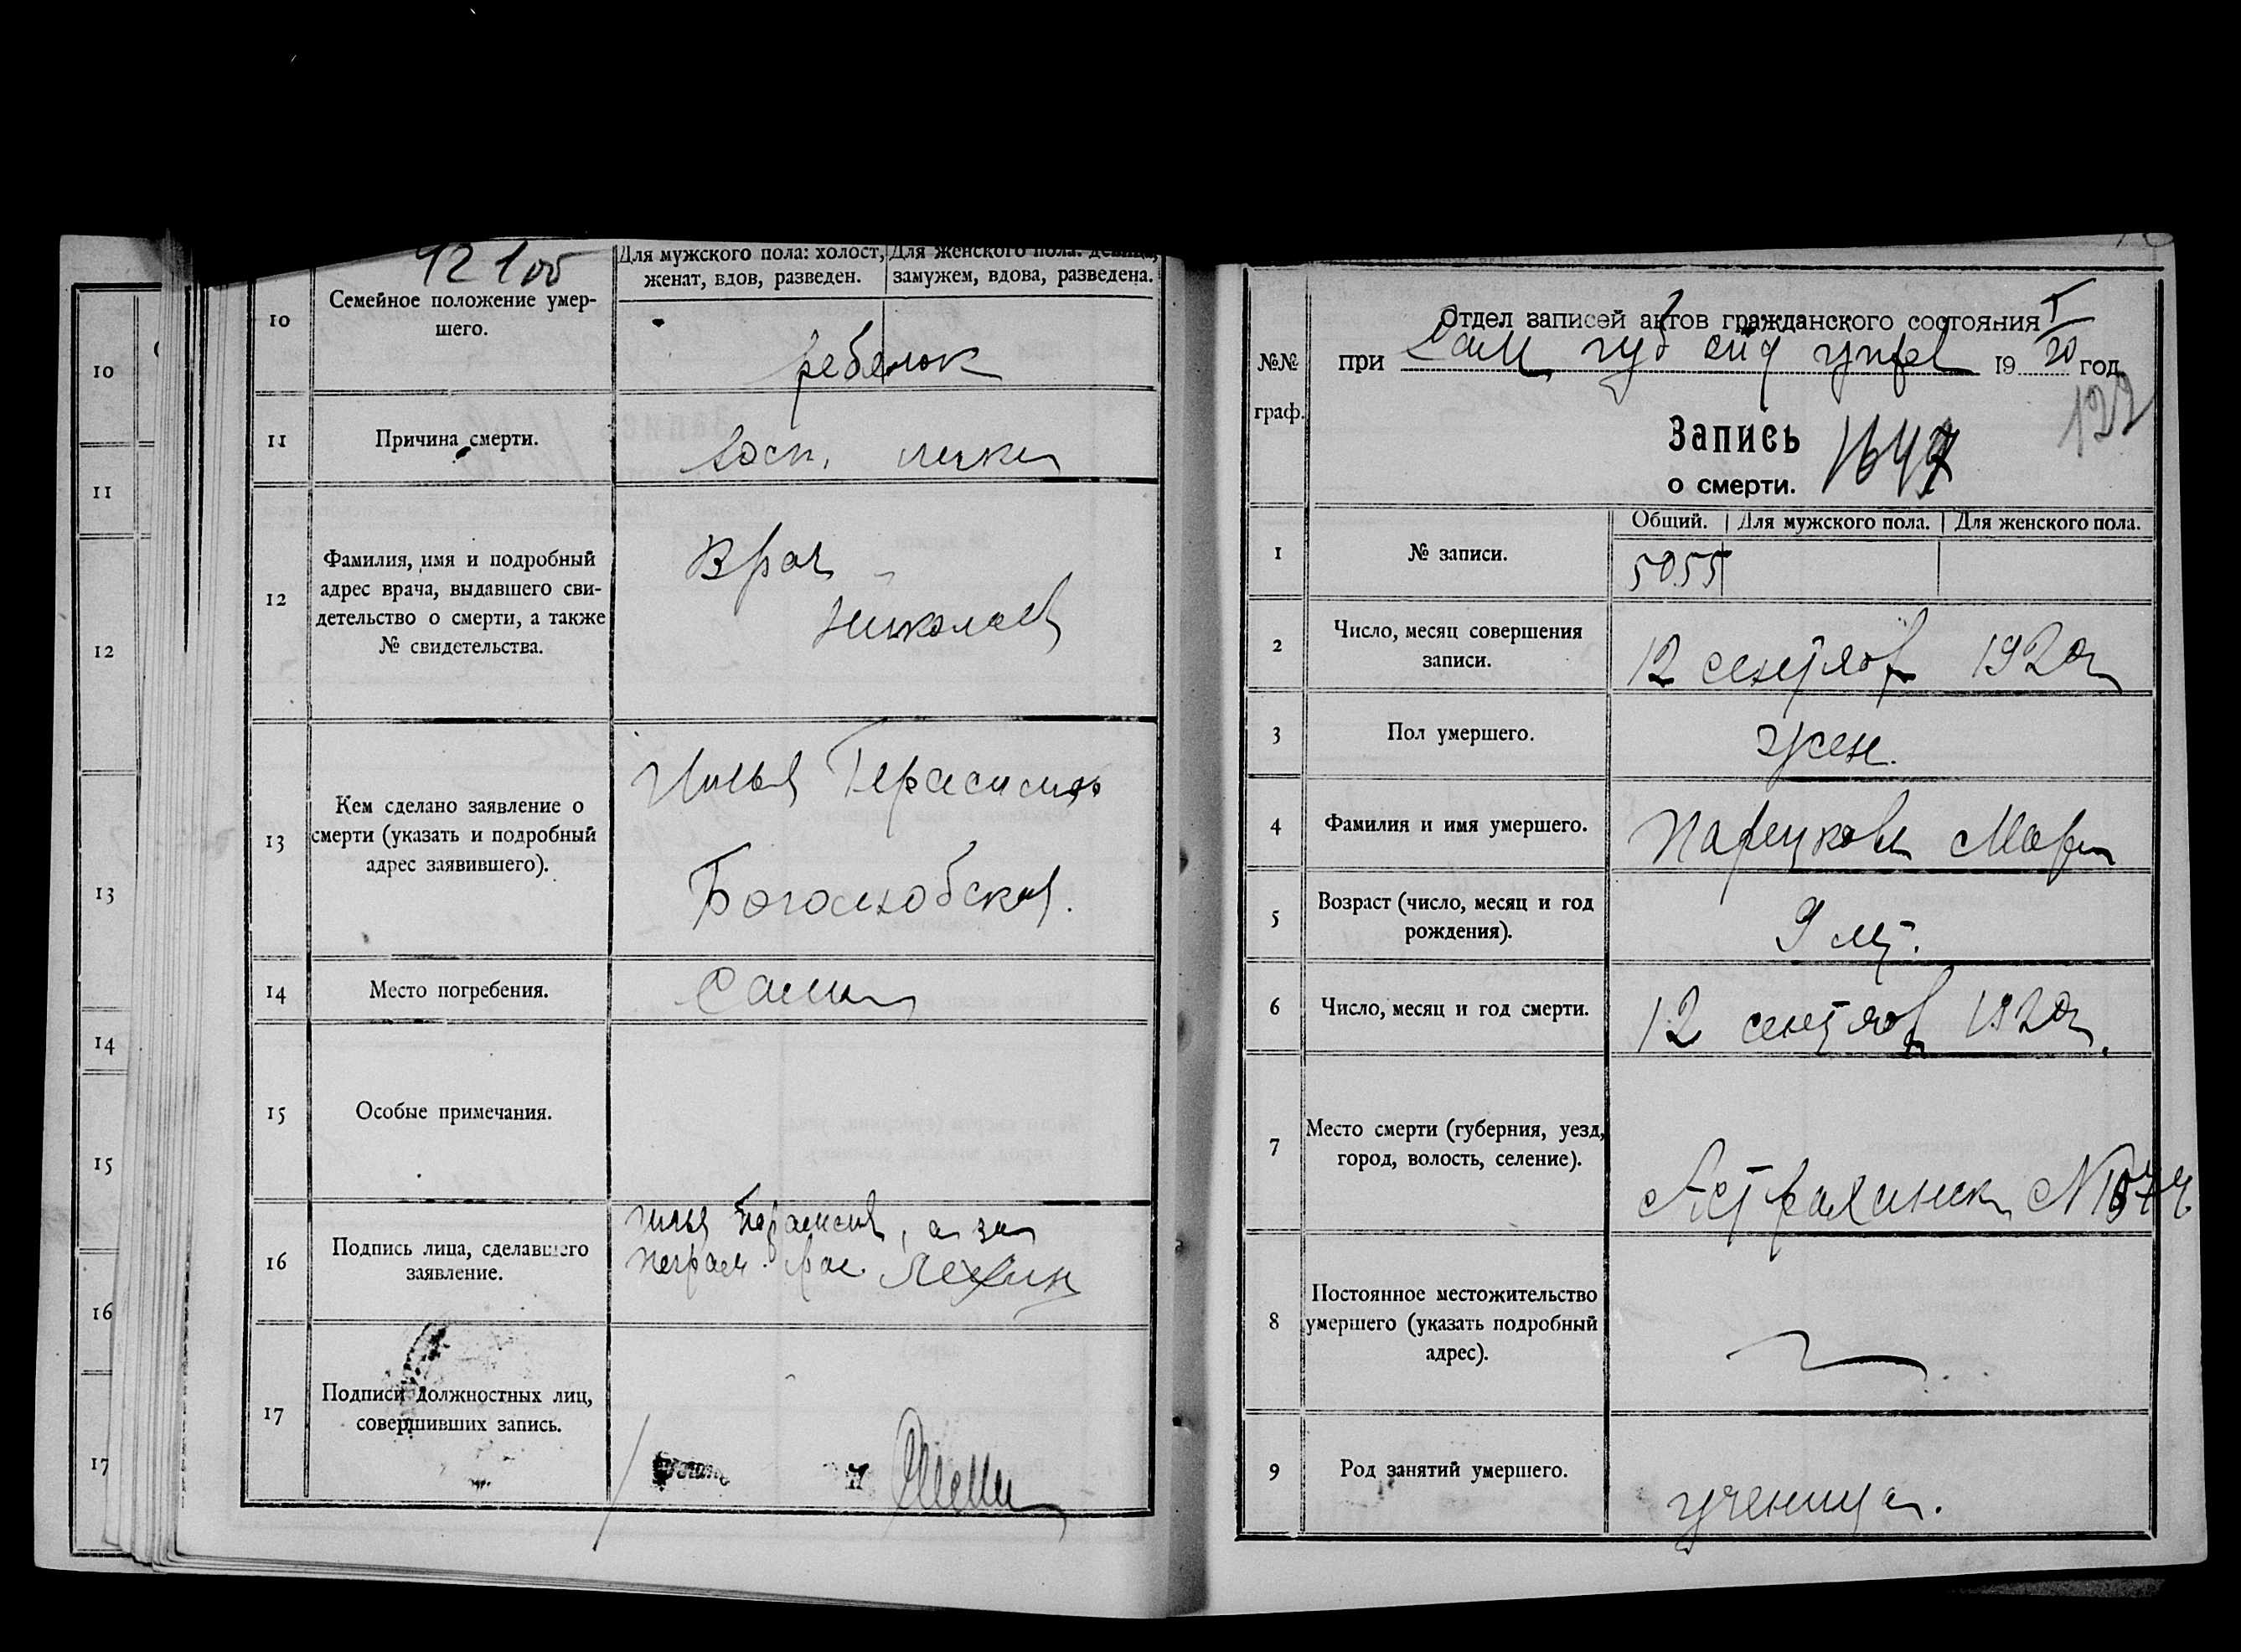 10
11
12
13
14
15
16
17
10
Семейное положение умер-
шего.
Для мужского пола: холост,
женат, вдов, разведен.
Для женского пола: девица,
замужем, вдова, разведена.
ребенок
11
Причина смерти.
Восп. легких
12
Фамилия, имя и подробный
адрес врача, выдавшего сви-
детельство о смерти, а также
№ свидетельства.
Врач
Николаев
13
Кем сделано заявление о
смерти (указать и подробный
адрес заявившего).
Илья Герасимов
14
Место погребения.
15
Особые примечания.
16
Подпись лица, сделавшего
заявление.
Илья Герасимов, а за
неграм. рас.
17
Подписи должностных лиц,
совершивших запись.
№№
граф.
Отдел записей актов гражданского состояния
при 19 20 год
122
Запись 1647
о смерти.
Общий. Для мужского пола. Для женского пола.
1
№ записи.
5055
2
Число, месяц совершения
записи.
12 сентяб 1920 г
3
Пол умершего.
жен.
4
Фамилия и имя умершего.
5
Возраст (число, месяц и год
рождения).
9 л.
6
Число, месяц и год смерти.
12 сентяб 1920 г.
7
Место смерти (губерния, уезд,
город, волость, селение).
Астраханск
8
Постоянное местожительство
умершего (указать подробный
адрес).
9
Род занятий умершего.
ученица.